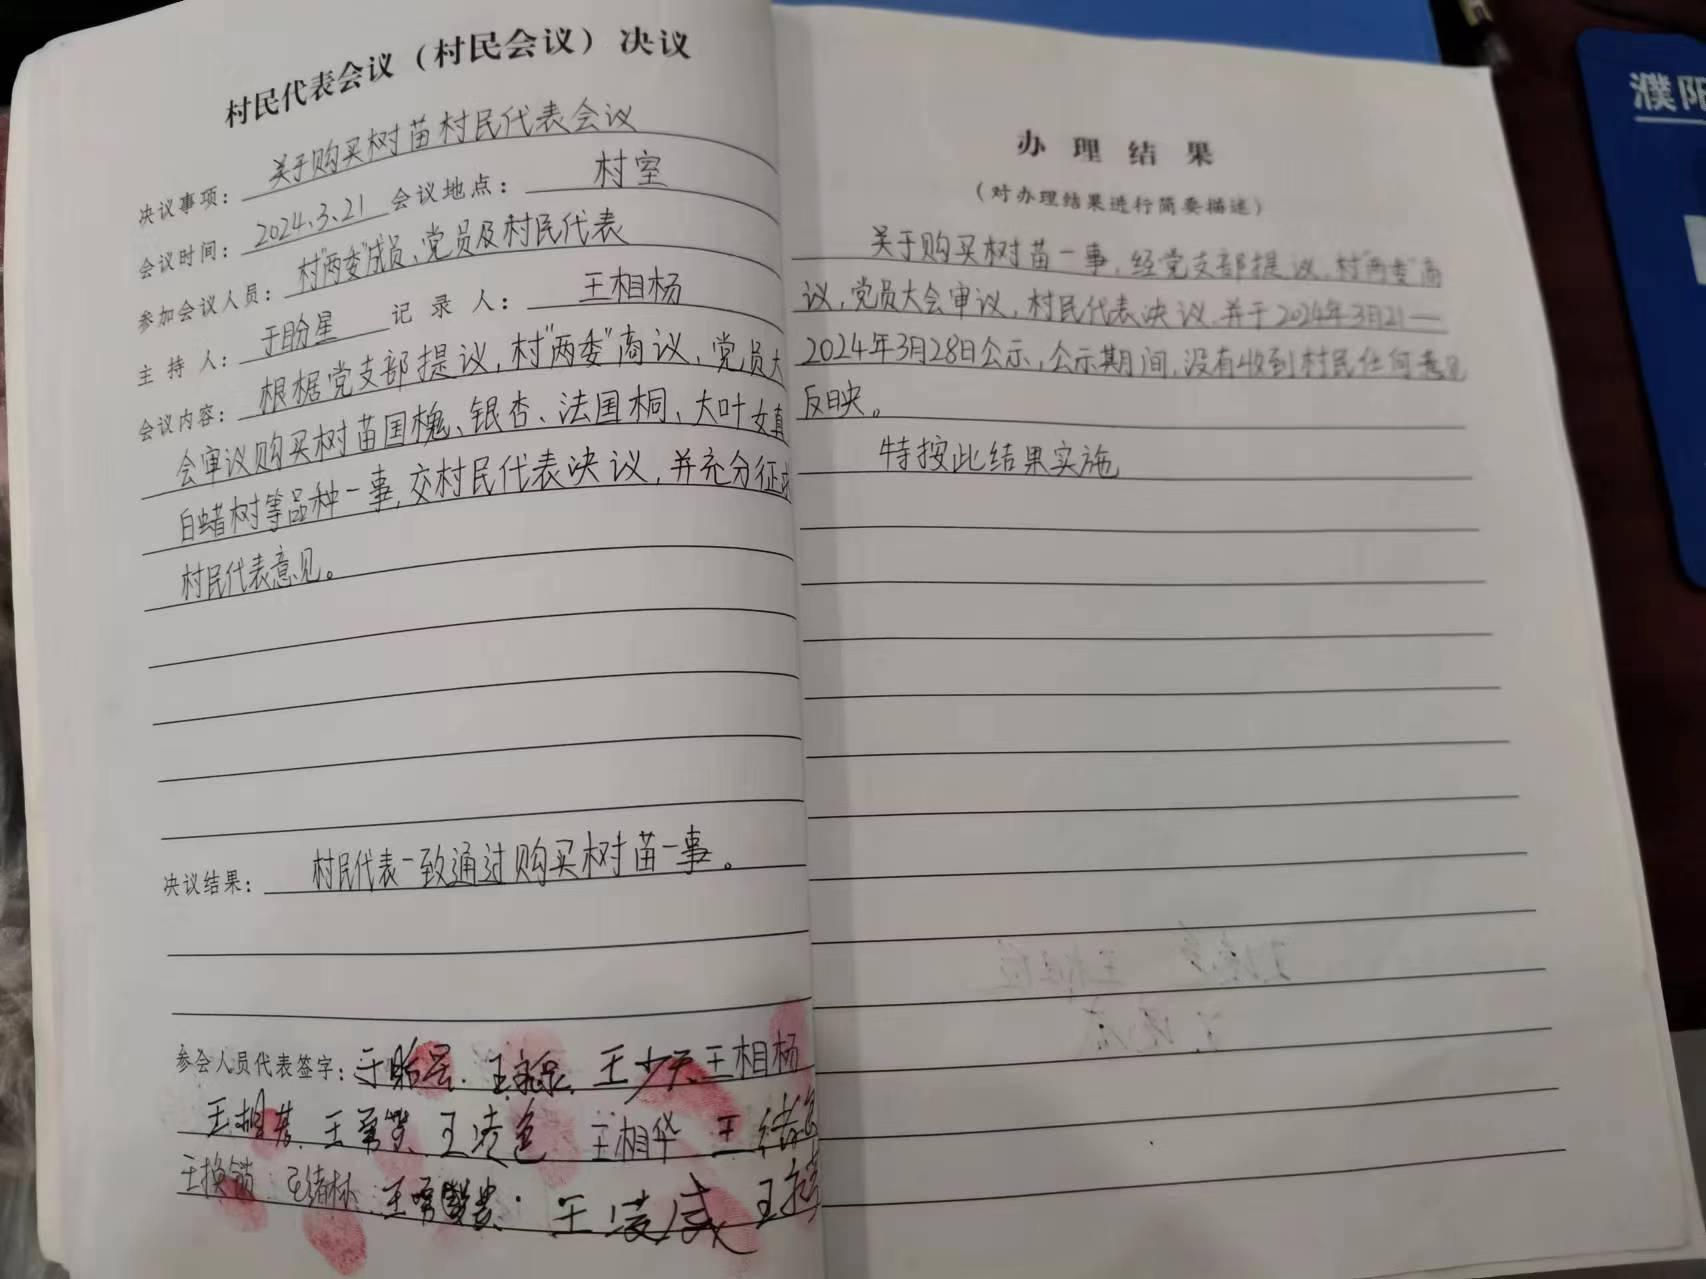 村民代表会议（村民会议）决议
决议事项：关于购买树苗村民代表会议
会议时间：2024.3.21 会议地点：村室
参加会议人员：村"两委"成员、党员及村民代表
主持人：于盼星 记录人：王相杨
会议内容：根据党支部提议，村"两委"商议，党员大
会审议购买树苗国槐、银杏、法国桐、大叶女真
白蜡树等品种一事，交村民代表决议，并充分征求
村民代表意见。
决议结果：村民代表一致通过购买树苗一事。
参会人员代表签字：于盼星 王少天 王相杨
王相华 王绪
王换锁 王绪林 王凌威
办理结果
（对办理结果进行简要描述）
关于购买树苗一事，经党支部提议，村"两委"商
议，党员大会审议，村民代表决议，并于2024年3月21—
2024年3月28日公示，公示期间，没有收到村民任何意见
反映。
特按此结果实施
濮阳